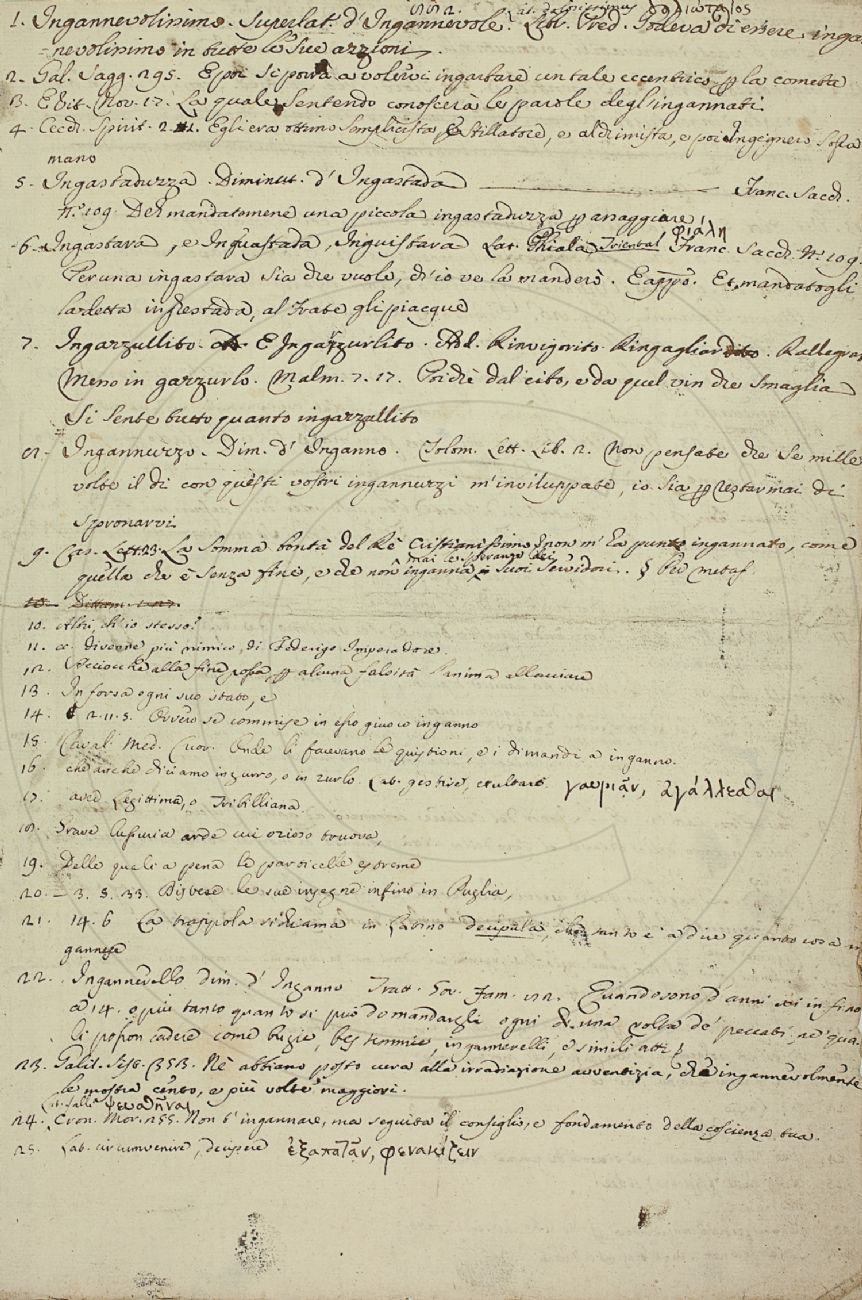 Lat. dolosissimus δολιώτατος
1. Ingannevolissimo. Superlat. d'Ingannevole. Lib. Pred. Godeva di essere inga
nevolissimo in tutte le sue azzioni.
2. Gal. Sagg. 295. E poi si porrà a volervi ingastare un tale eccentrico p la cometa
3. Edit. Nov. 17. La quale sentendo conoscerà le parole degl'ingannati.
4. Cecch. Spirit. 2. 1. Egli era ottimo Semplicista, Stillatore, e alchimista, e poi Ingegnero Sopra
mano
5. Ingastaduzza. Diminut. d'Ingastada Franc. Sacch.
N.º 109. Deh mandatemene una piccola ingastaduzza p assaggiare
6. Ingastara, e Inguastada, Inguistara Lat. Phiala φιάλη Franc. Sacch. N.º 109.
Per una ingastara sia che vuole, ch'io ve la manderò. E appo. Et mandatogli
la detta inghestada, al Frate gli piacque
7. Ingarzullito. E Ingazzurlito. Add. Rinvigorito. Ringagliardito. Rallegrato
Messo in gazzurlo. Malm. 7. 17. Poichè dal cibo, e da quel vin che smaglia
Si sente tutto quanto ingarzullito
8. Ingannuzzo. Dim. d'Inganno. Tolom. Lett. Lib. 2. Non pensate che se mille
volte il dì con questi vostri ingannuzzi m'inviluppate, io sia p restar mai di
spronarvi.
9. Cas. Lett. 23. La somma bontà del Rè Cristianissimo non m'ha punto ingannato, come
quella che è senza fine, e che non inganna mai le speranze dei suoi Servidori. § Per metaf.
10. Altri, ch'io stesso!
11. divenne più nimico, di Federigo Imperadore.
12. Acciocchè alla fine possa p alcuna falsità l'anima allacciare
13. In forsa ogni suo stato, e
14. 2. 11. 5. Ovvero se commise in esso giuoco inganno
15. Caval. Med. Cuor. Onde li facevano le quistioni, e i dimandi a inganno.
16. che anche diciamo in zurro, o in zurlo. Lat. gestire, exultare. γαυριᾷν, ἀγάλλεσθαι
17. aved Legittima, o Tribilliana.
18. Grave lussuria arde cui ozioso truova,
19. Delle quali a pena le paroicelle espreme
20. — 3. 5. 33. Distese le sue insegne infino in Puglia,
21. 14. 6 La trappola si chiama in Latino decipula, è a dire quanto cosa in
gannese
22. Ingannerello dim. d'Inganno Tratt. Gov. Fam. Quando sono d'anni infino
a 14. o più tanto quanto si può domandargli ogni dì una volta de' peccati, ne' qua-
li posson cadere come bugie, bestemmie, ingannerelli, e simili atti
23. Galil. Sist. 353. Nè abbiano posto cura alla irradiazione avventizia, che ingannevolmente
le mostra cento, e più volte maggiori.
Lat. falli ψευσθῆναι
24. Cron. Mor. 255. Non t'ingannare, ma seguita il consiglio, e fondamento della coscienza tua.
25. Lat. circumvenire, decipere ἐξαπατᾷν, φενακίζειν